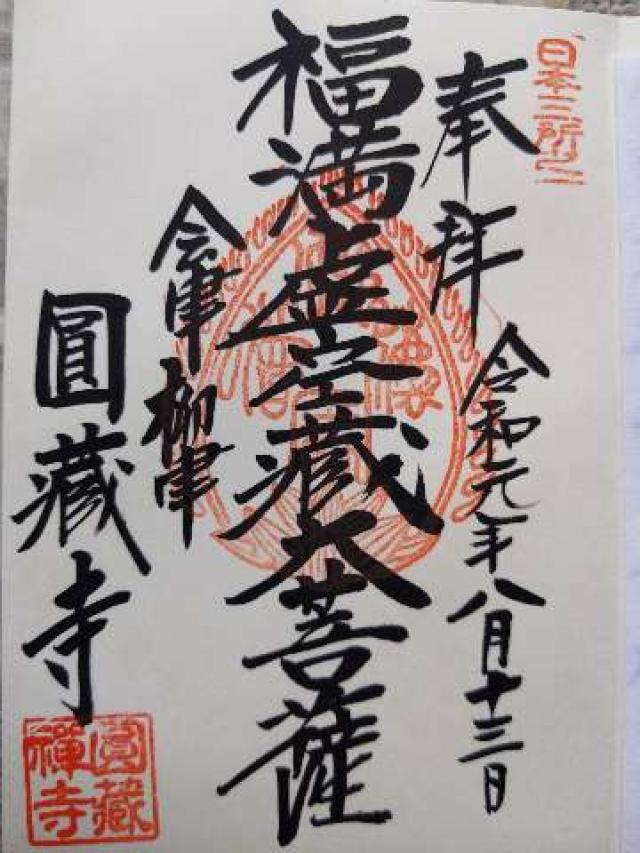 日本三所之一
奉拝
令和元年八月十三日
福満虚空蔵大菩薩
会津
柳津
圓藏寺
圓藏
禅寺